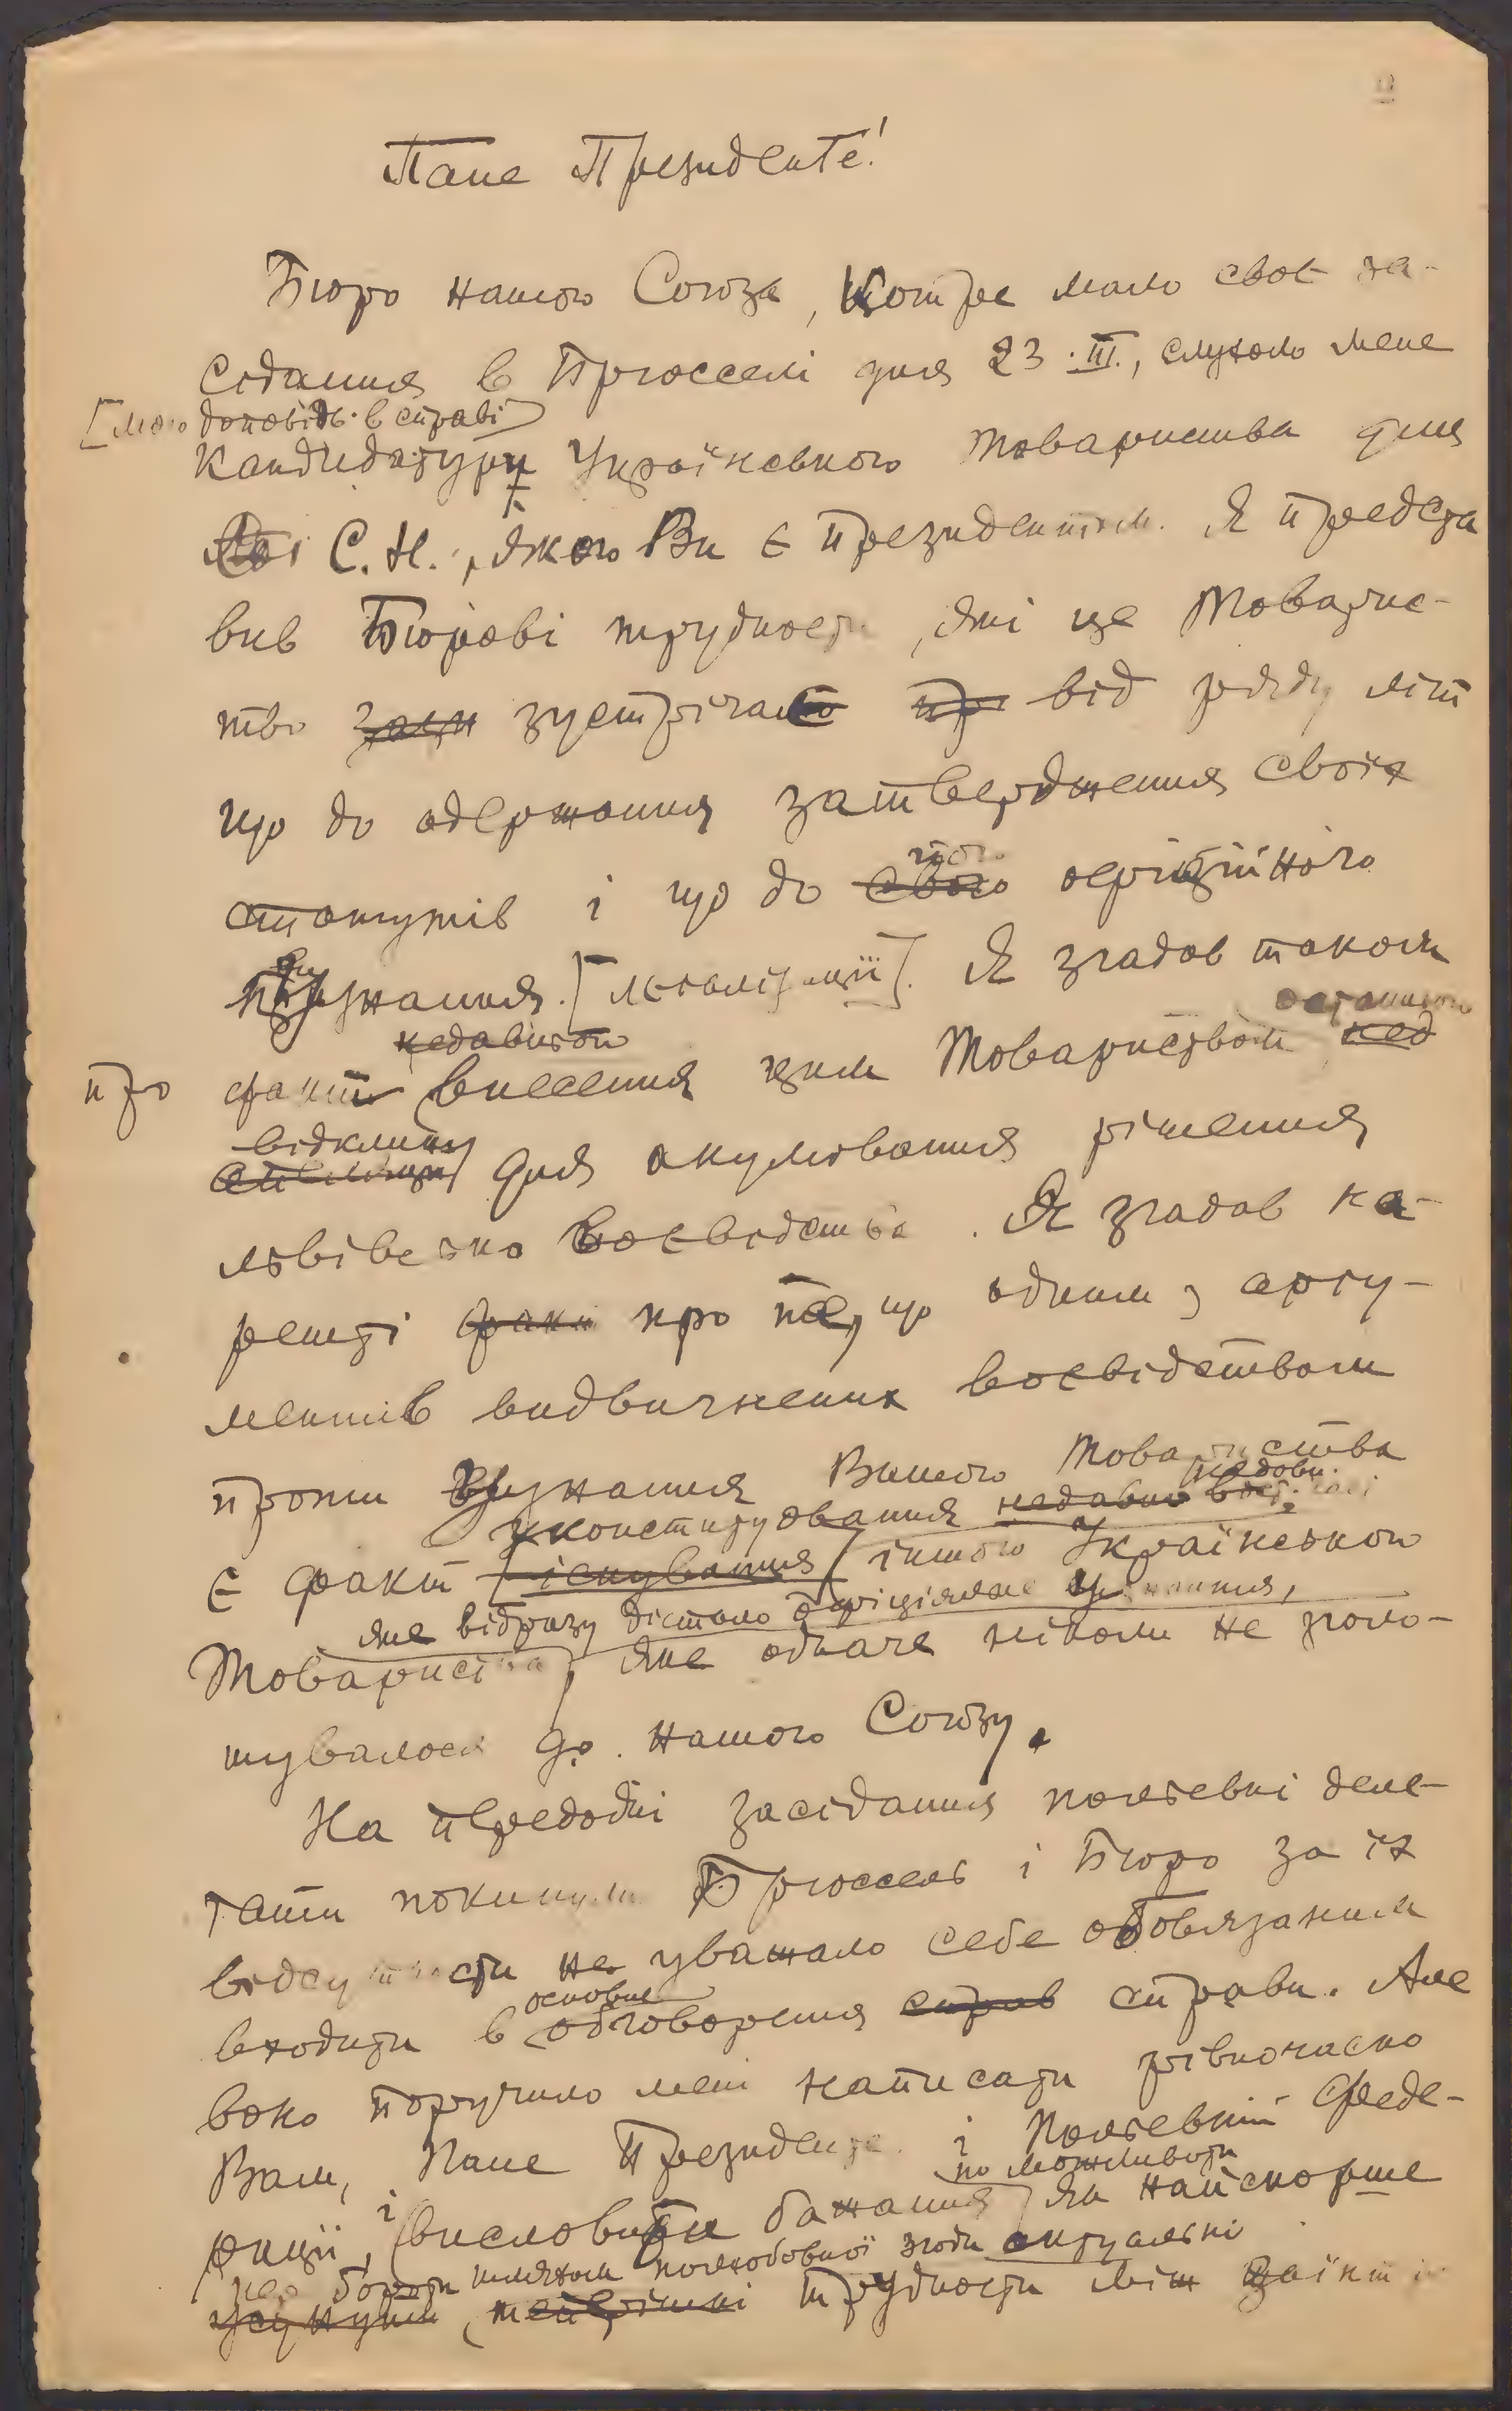 Пане Президенте!
Бюро нашого Союза, котре мало своє за-
сідання в Брюсселі дня 23.III., слухало мене
[мою доповідь в справі]
кандидатури Українського Товариства для
С. Н., якого Ви є президентом. Я предста
вив Бюрові трудности, які це Товарис-
тво зустрічає від ряду літ
що до одержання затвердження своїх
статутів і що до його
свого офіційного
признання. [легалізації]. Я згадав також
недавнього останнього
про факт внесення цим Товариством нед
відклику
апеляції для анулювання рішення
львівського воєвідства. Я згадав на-
решті факт про те, що одним з аргу-
ментів видвигнених воєвідством
проти признання Вашого Товариства
уконституовання недавно
є факт існування іншого Українського
яке відразу дістало офіціяльне признання,
Товариства, яке одначе ніколи не зголо-
шувалося до нашого Союзу.
На передодні засідання польські деле-
гати покинули Брюссель і Бюро за їх
відсутности не уважало себе обовязаним
основне
входити в обговорення справ справи. Але
воно поручило мені написати рівночасно
Вам, Пане Президенте і Польській Феде-
по можливости
рації, і висловити бажання як найскорше
побороти шляхом полюбовної згоди актуальні
усунути теперішні трудности між